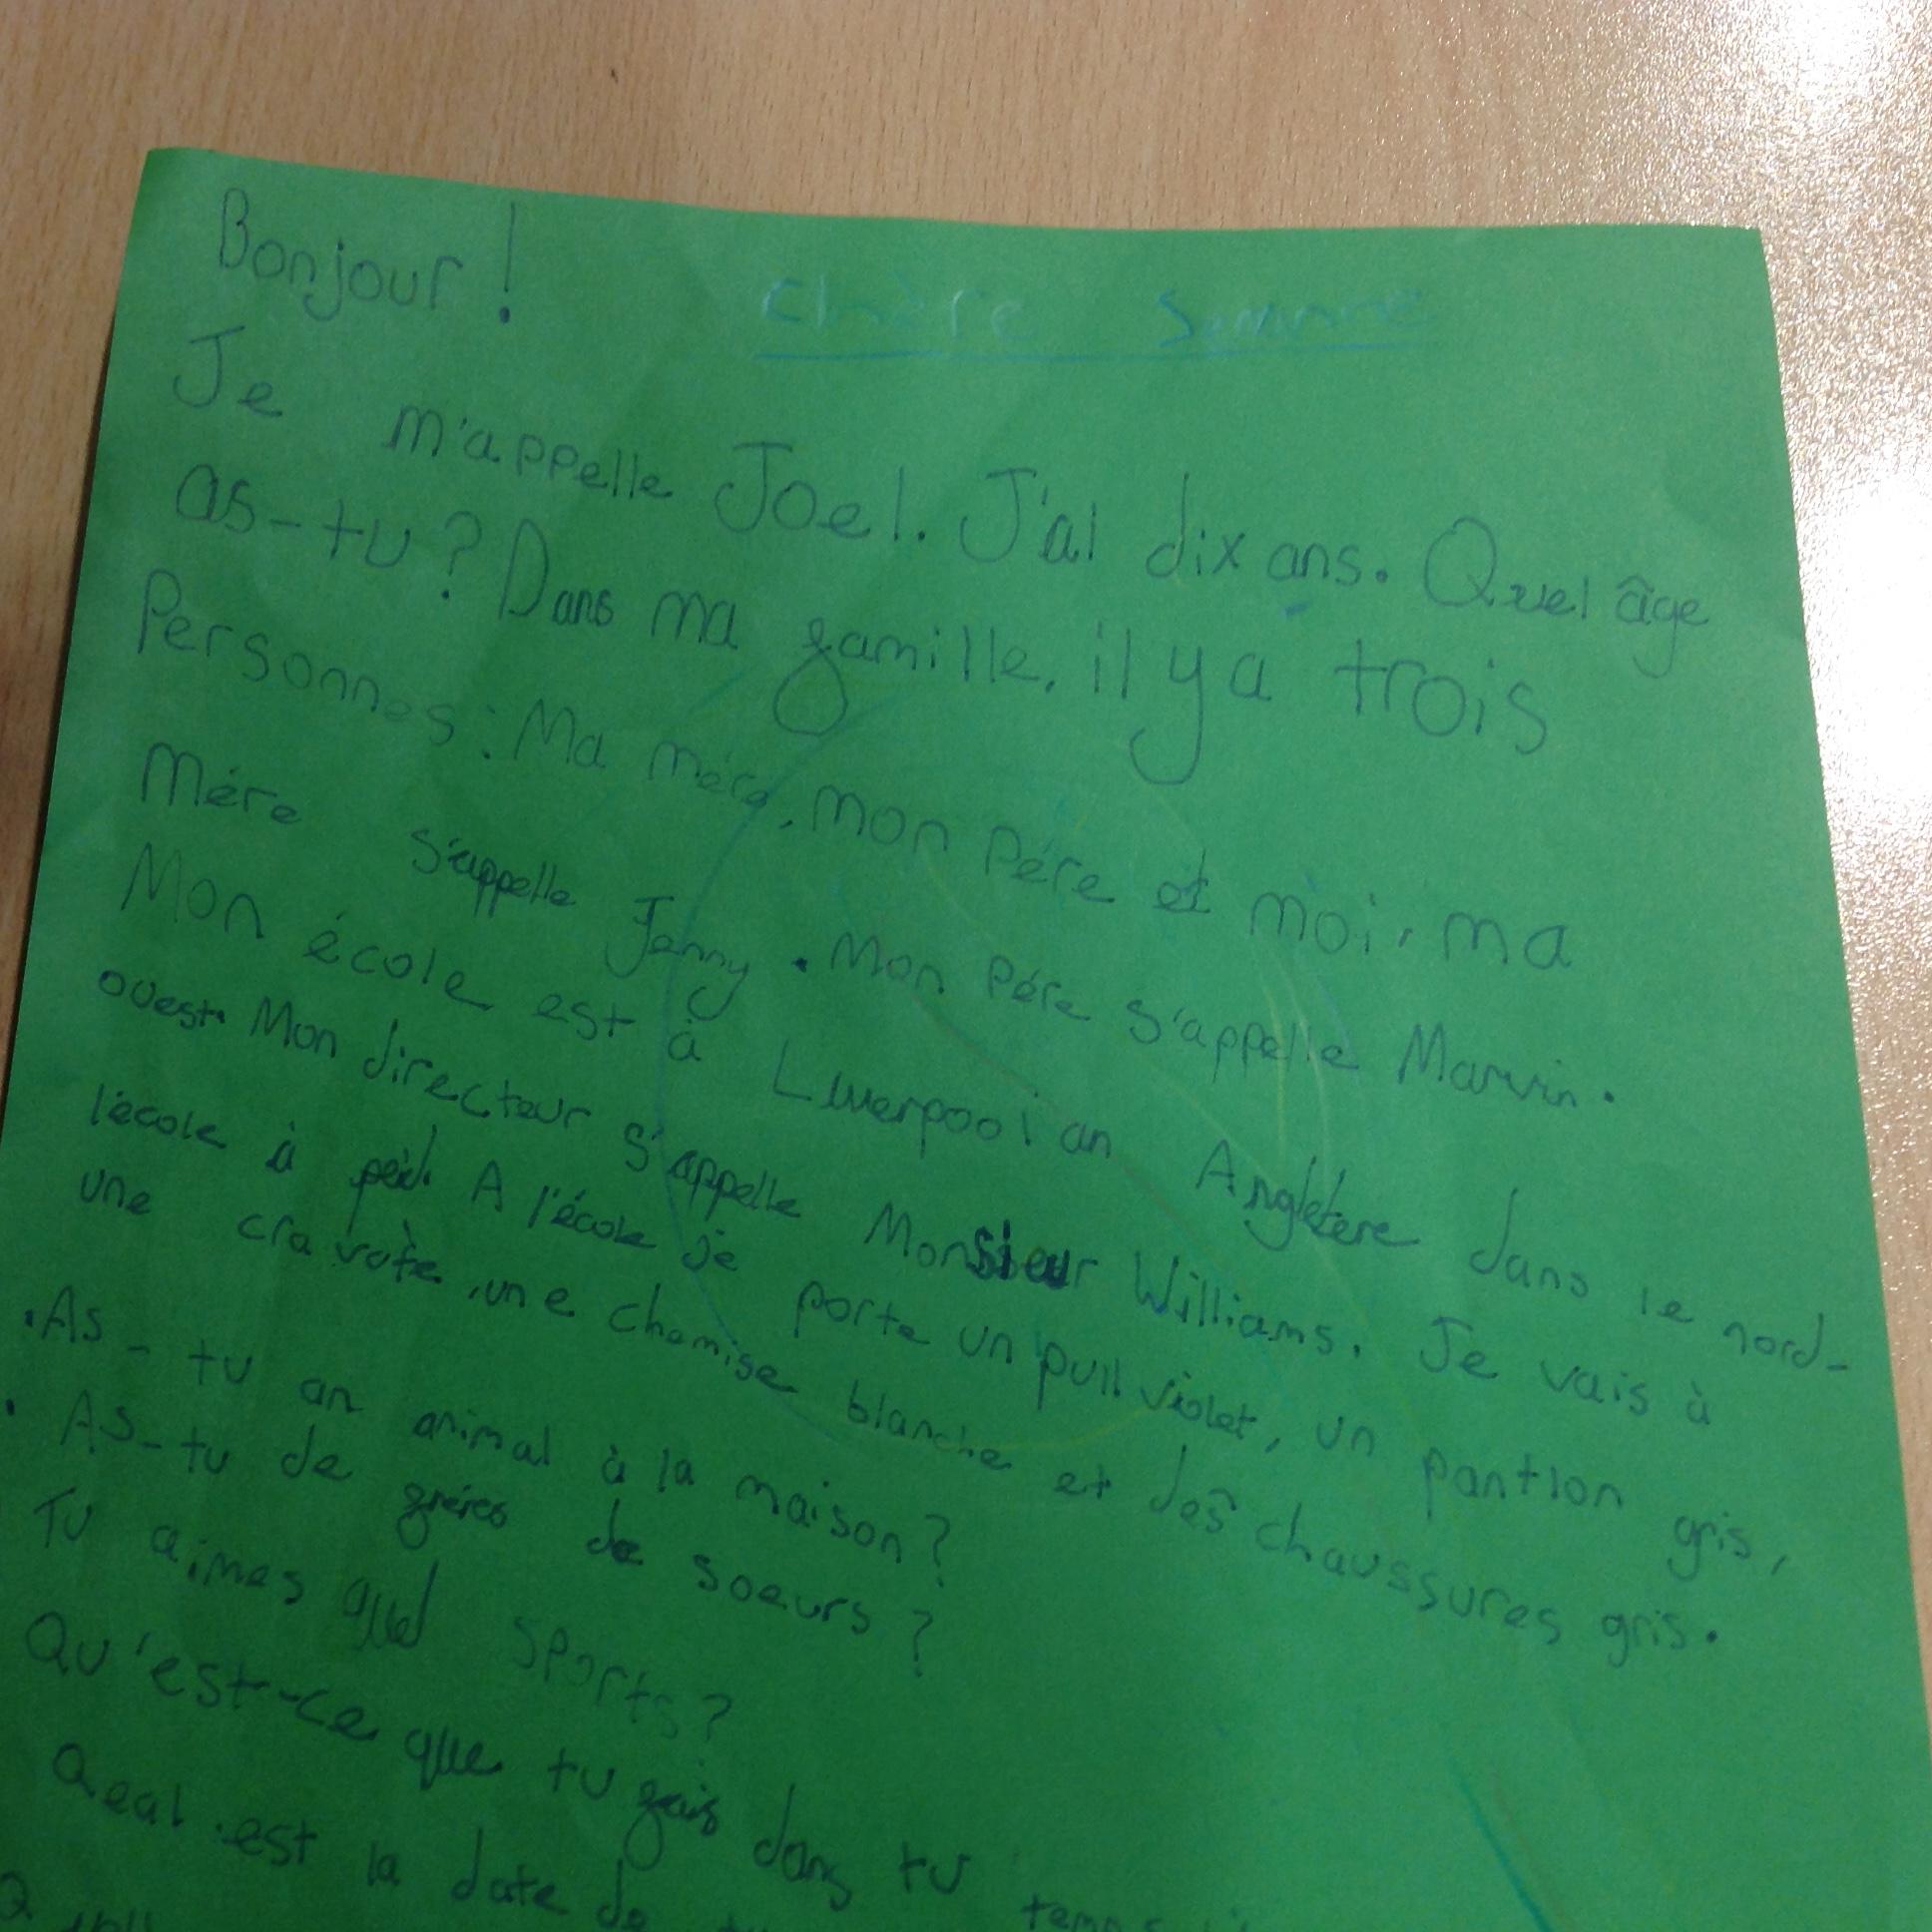 Bonjour!
Chère
Je m'appelle Joel. J'ai dix ans. Quel âge
as-tu? Dans ma famille, il y a trois
Personnes: Ma mére, mon Pére et moi. ma
Mére s'appelle Jenny. Mon Pére s'appelle Marvin.
Mon école est à Liverpool an Angleterre dans le nord-
ouest. Mon directeur s'appelle Monsieur Williams. Je vais à
l'école à A l'école je porte un pull violet, un pantlon gris,
une cravate, une chemise blanche et des chaussures gris.
. As-tu an animal à la maison?
. As-tu de fréres de soeurs?
Tu aimes quel sports?
Qu'est-ce que tu fais dans tu temps
est la date de